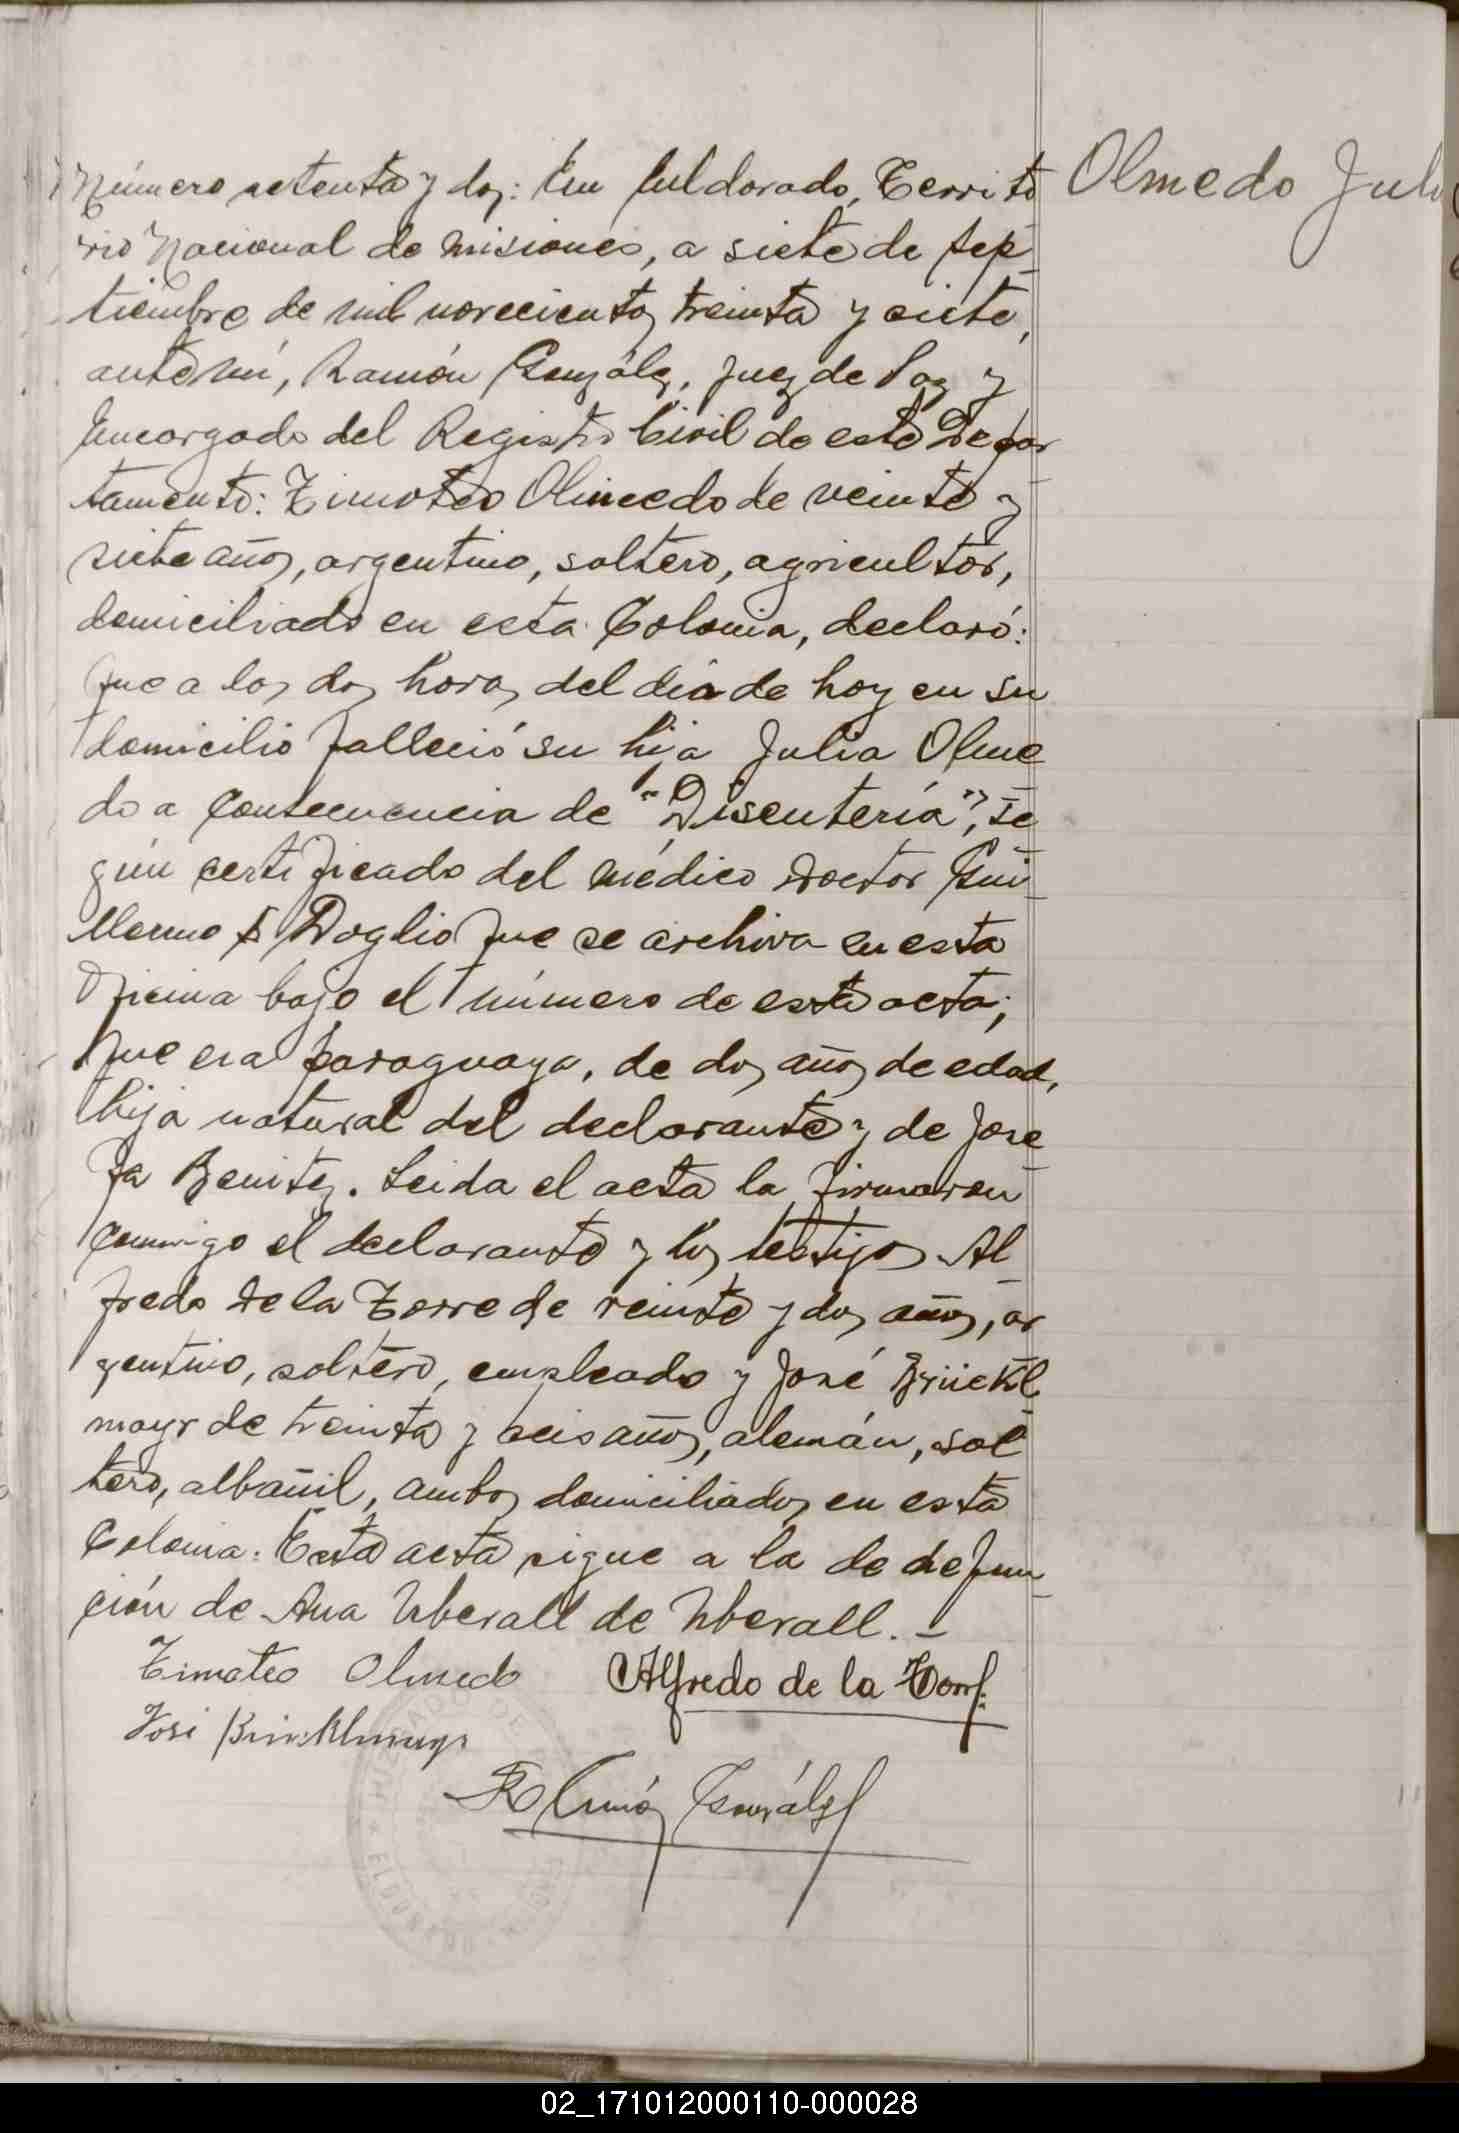 Número setenta y dos: En Eldorado, Territo
rio Nacional de Misiones, a siete de sep-
tiembre de mil novecientos treinta y siete,
ante mí, Ramón González, Juez de Paz y
Encargado del Registro Civil de este Depar-
tamento: Timoteo Olmedo de veinte y
siete años, argentino, soltero, agricultor,
domiciliado en esta Colonia, declaró:
Que a las dos horas del día de hoy en su
domicilio falleció su hija Julia Olme-
do a consecuencia de "Disentería", se-
gún certificado del médico Doctor Gui-
llermo Doglio que se archiva en esta
Oficina bajo el número de esta acta;
Que era paraguaya, de dos años de edad,
hija natural del declarante y de Jose-
fa Benitez. Leida el acta la firmaron
conmigo el declarante y los testigos Al-
fredo de la Torre de veinte y dos años, ar-
gentino, soltero, empleado y José Brückl-
mayr de treinta y seis años, alemán, sol-
tero, albañil, ambos domiciliados en esta
Colonia. Esta acta sigue a la de defun-
ción de Ana Uberall de Uberall. -
Timoteo Olmedo Alfredo de la Torre
José Brücklmayr
Ramón González
Olmedo Juli
ELDORADO
02_171012000110-000028